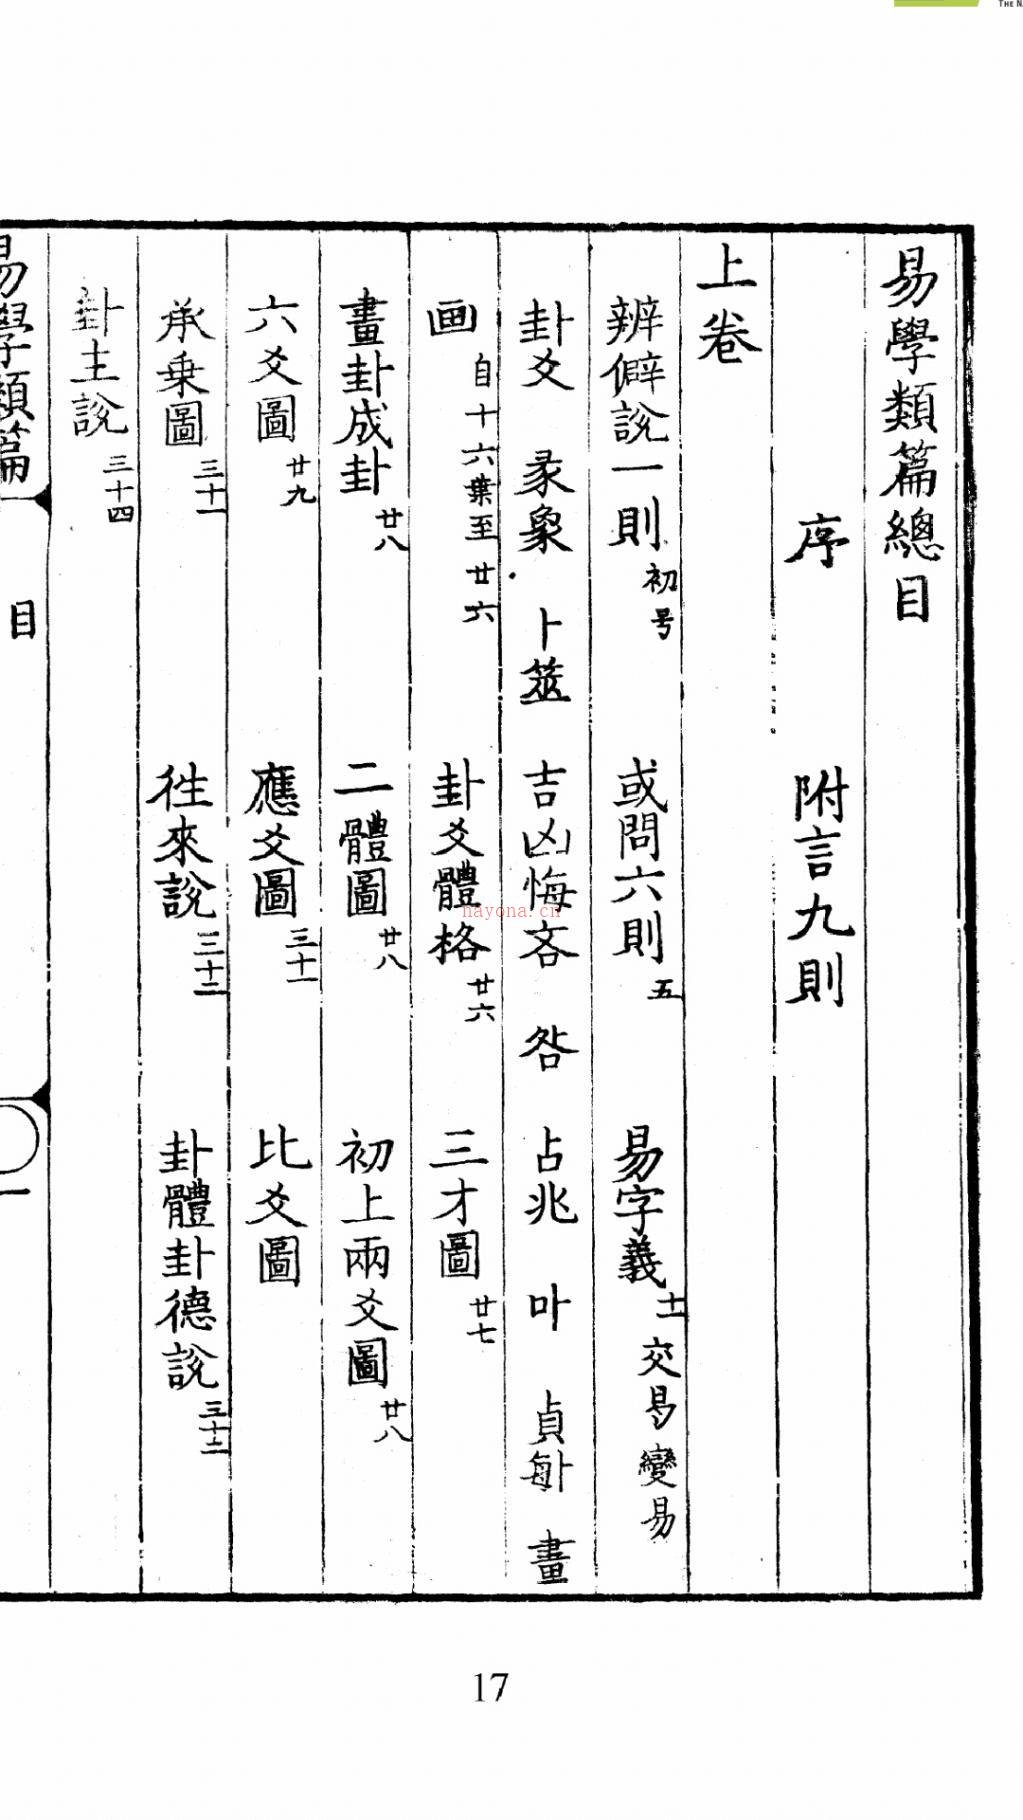 THE N
易學類篇總目
序 附言九則
上卷
辨僻說一則 初号 或問六則 五 易字義 十一 交易變易
卦爻 彖象 卜筮 吉凶悔吝 咎 占兆 叶 貞 畫
画 自十六葉至廿六 卦爻體格 廿六 三才圖 廿七
畫卦成卦 廿八 二體圖 廿八 初上兩爻圖 廿八
六爻圖 廿九 應爻圖 三十一 比爻圖
承乗圖 三十一 徃來說 三十二 卦體卦德說 三十二
卦主說 三十四
易學類篇 目 一
nayona.cn
17